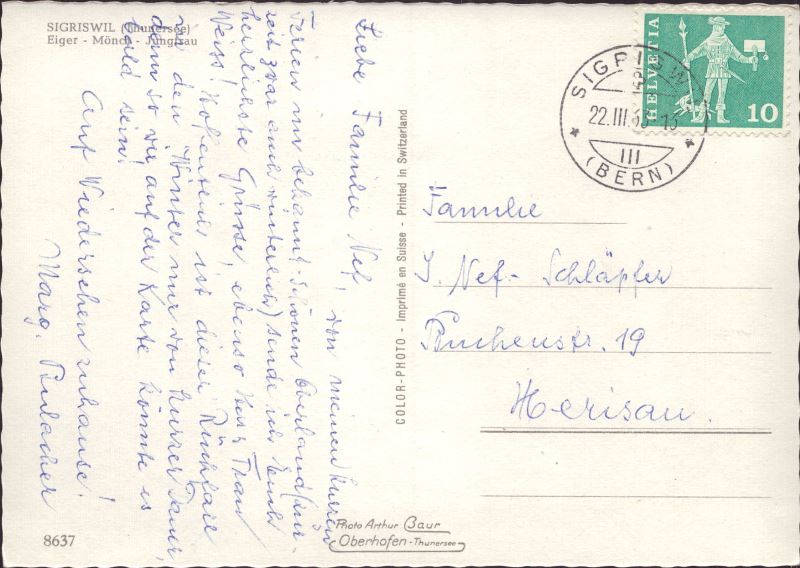 SIGRISWIL (Thunersee)
Eiger - Mönch - Jungfrau
Liebe Familie Nef,
von meinen kurzen
Ferien im bekannt schönen Oberland (zur-
zeit zwar auch winterlich) sende ich Euch
herzlichste Grüsse, ebenso Frau
Weiss! Hoffentlich ist dieser Rückfall
in den Winter nur von kurzer Dauer,
denn so wie auf der Karte könnte es
bald sein!
Auf Wiedersehen zuhause!
Marg.
8637
COLOR-PHOTO - Imprimé en Suisse - Printed in Switzerland
Photo Arthur Baur
Oberhofen - Thunersee
HELVETIA
10
SIGRISWIL
22.III.
III
(BERN)
Familie
J. Nef-Schläpfer
Buchenstr. 19
Herisau.